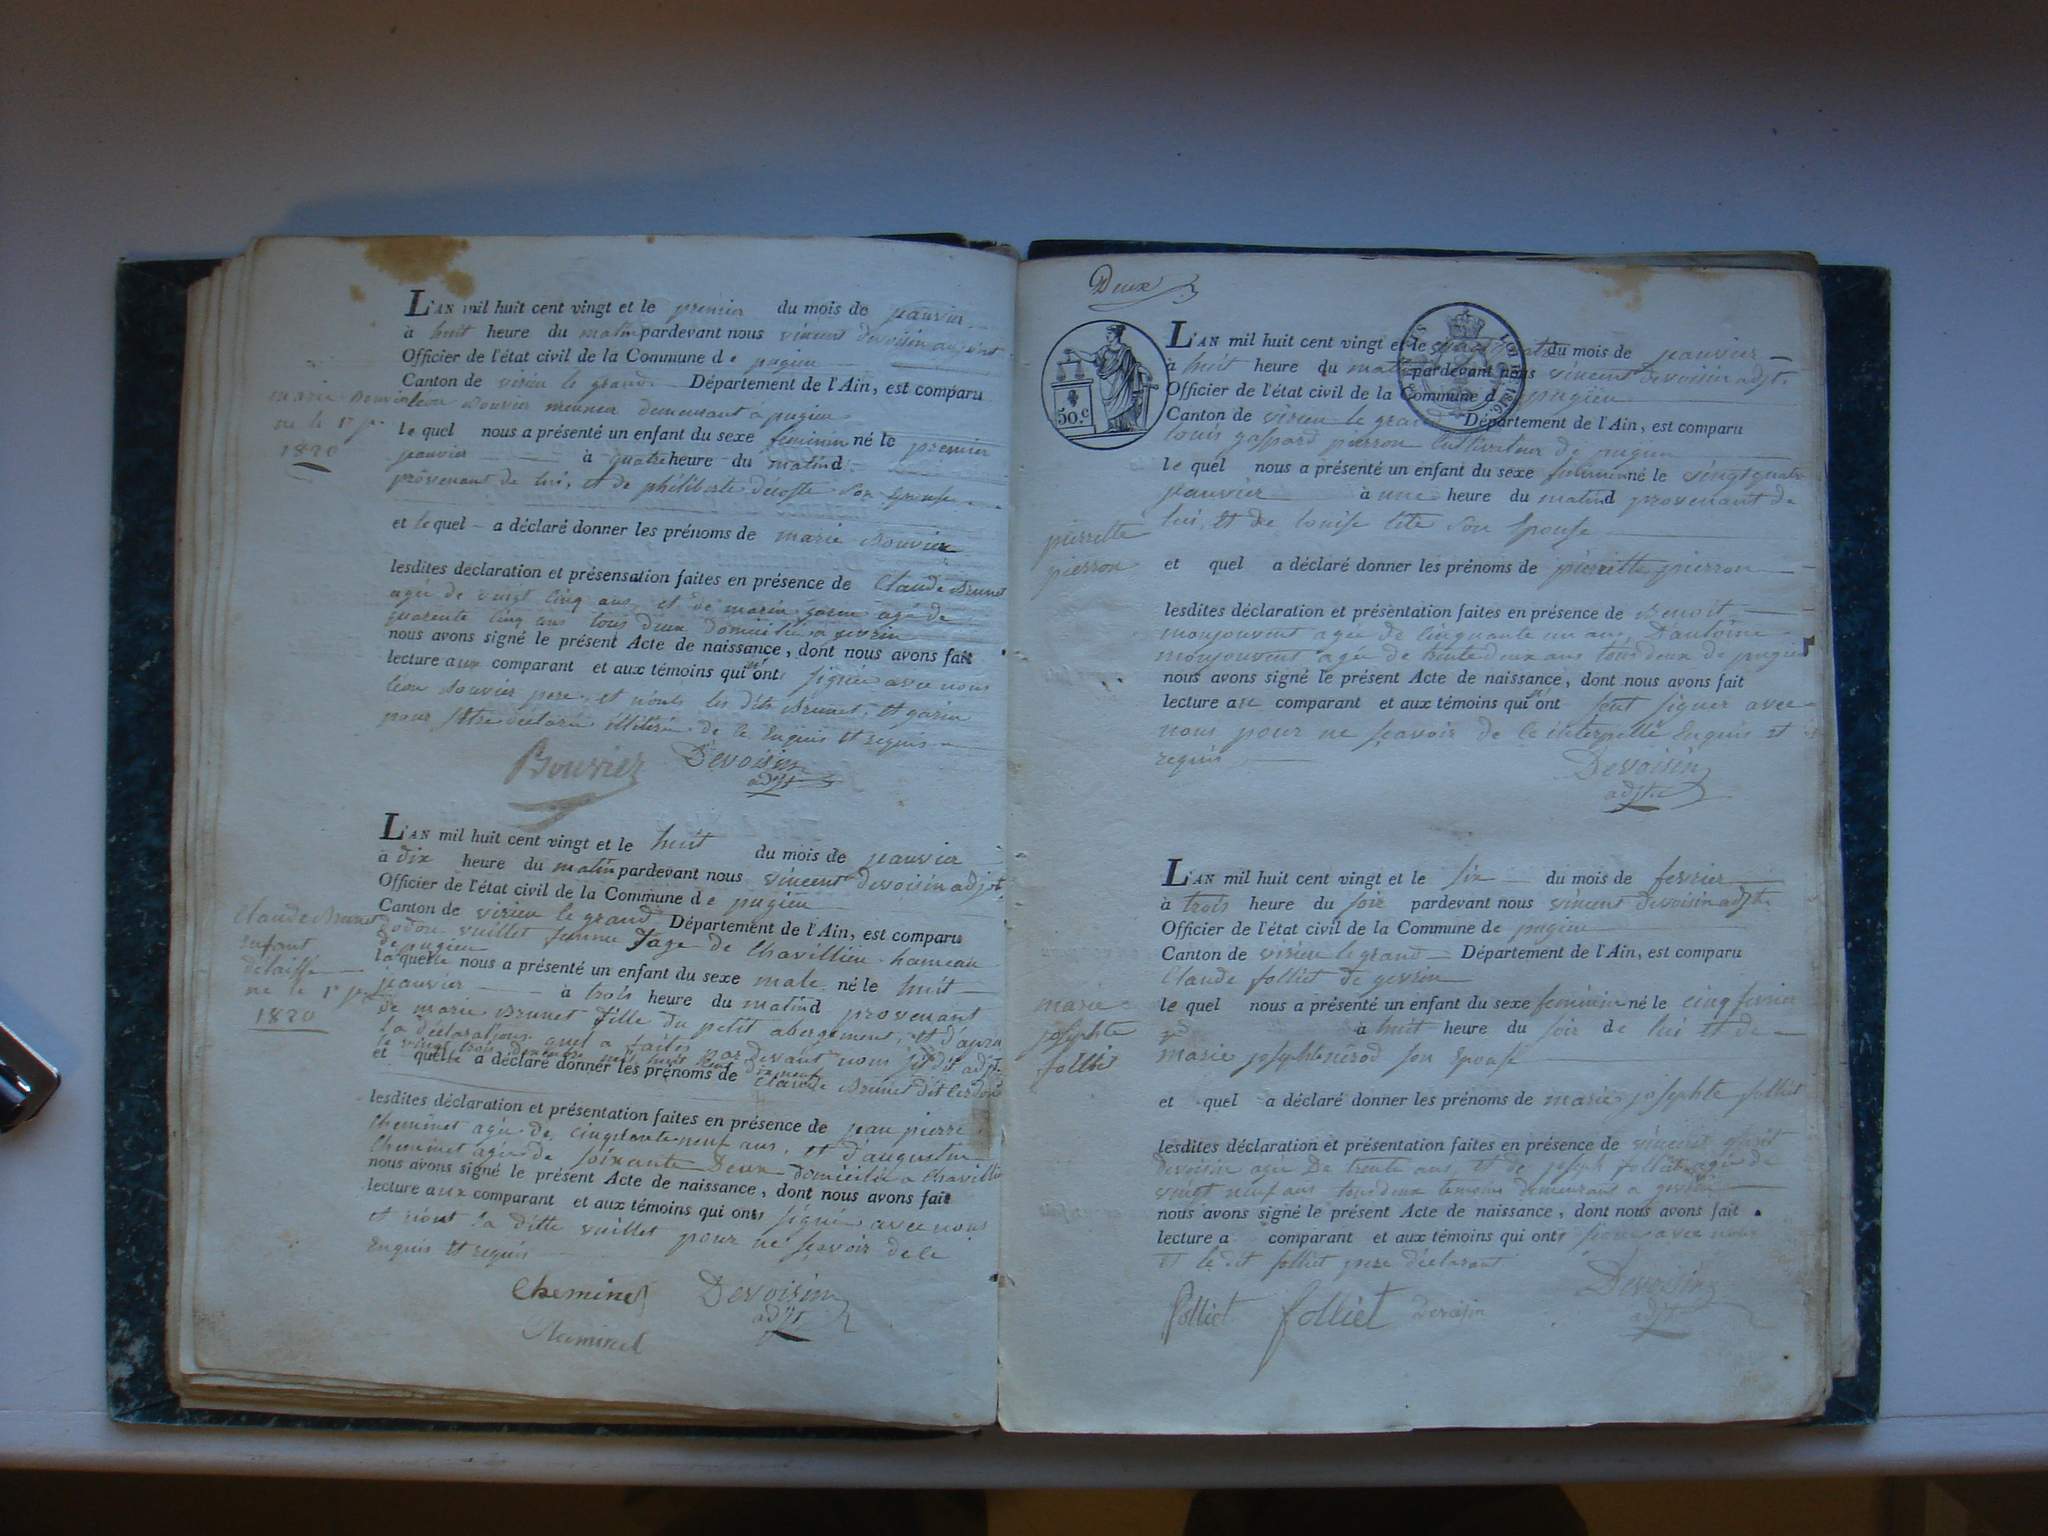 L'AN mil huit cent vingt et le premier du mois de janvier
à huit heure du matin pardevant nous vincent devoisin adjoint
Officier de l'état civil de la Commune de pugieu
Canton de virieu le grand Département de l'Ain, est comparu
léon Bouvier meunier demeurant à pugieu
marie Bouvier
né le 1er jer
1820
le quel nous a présenté un enfant du sexe féminin né le premier
janvier à quatre heure du matin d
provenant de lui, et de philiberte décoste son Epouse
et le quel a déclaré donner les prénoms de marie Bouvier
lesdites déclaration et présensation faites en présence de Claude Brunet
agée de vingt Cinq ans, et de marin garin agé de
quarente Cinq ans tous deux domicilié a
nous avons signé le présent Acte de naissance, dont nous avons fait
lecture aux comparant et aux témoins qui n'ont signée avec nous
léon Bouvier pere, et nonts les dits Brunet, et garin
pour être déclaré illitéré de ce Enquis et requis
Bouvier Devoisin
adjt
L'AN mil huit cent vingt et le huit du mois de janvier
à dix heure du matin pardevant nous vincent devoisin adjt
Officier de l'état civil de la Commune de pugieu
Canton de virieu le grand Département de l'Ain, est comparu
vuillet femme Jage de Chavillieu hameau
de pugieu
Claude Brunet
enfant
délaissé
né le 1er jer
1820
la quelle nous a présenté un enfant du sexe male né le huit
janvier à trois heure du matin d provenant
de marie Brunet fille du petit abergement, et d'après
la déclarations quel a faites par devant nous
le vingt trois
et quelle a déclaré donner les prénoms de Claude Brunet dit
lesdites déclaration et présentation faites en présence de jean pierre
Cheminet agée de Cinquante neuf ans, et d'augustin
Cheminet agée de soixante Deux domicilié a Chavillieu
nous avons signé le présent Acte de naissance, dont nous avons fait
lecture aux comparant et aux témoins qui ont signé avec nous
et n'ont la ditte vuillet pour ne sçavoir de ce
Enquis et requis
Cheminet Devoisin
adjt
Cheminet
Deux
50.c
LOI DE 1816.
L'AN mil huit cent vingt et le vingt quatre du mois de janvier
à huit heure du matin pardevant nous vincent devoisin adjt
Officier de l'état civil de la Commune de pugieu
Canton de virieu le grand Département de l'Ain, est comparu
louis gaspard pierron Cultivateur de pugieu
le quel nous a présenté un enfant du sexe féminin né le vingt quatre
janvier à une heure du matin d provenant de
lui, et de louise tête son Epouse
pierrette
pierron
et quel a déclaré donner les prénoms de pierrette pierron
lesdites déclaration et présentation faites en présence de Benoit
monjouvent agée de Cinquante un ans, D'antoine
monjouvent agée de trente deux ans tous deux de pugieu
nous avons signé le présent Acte de naissance, dont nous avons fait
lecture au comparant et aux témoins qui n'ont seut signer avec
nous pour ne sçavoir de ce interpellé Enquis et
requis
Devoisin
adjt
L'AN mil huit cent vingt et le six du mois de fevrier
à trois heure du soir pardevant nous vincent devoisin adjt
Officier de l'état civil de la Commune de pugieu
Canton de virieu le grand Département de l'Ain, est comparu
Claude folliet de gevrin
marie
josephte
folliet
le quel nous a présenté un enfant du sexe feminin né le cinq fevrier
à huit heure du soir de lui et de
marie josephte nérod son Epouse
et quel a déclaré donner les prénoms de marie josephte folliet
lesdites déclaration et présentation faites en présence de vincent
Devoisin agée De trente ans, et de joseph folliet agée de
vingt neuf ans tous deux temoins demeurant a gevrin
nous avons signé le présent Acte de naissance, dont nous avons fait
lecture a comparant et aux témoins qui ont signé avec nous
et le dit folliet pere déclarant
folliet folliet Devoisin Devoisin
adjt